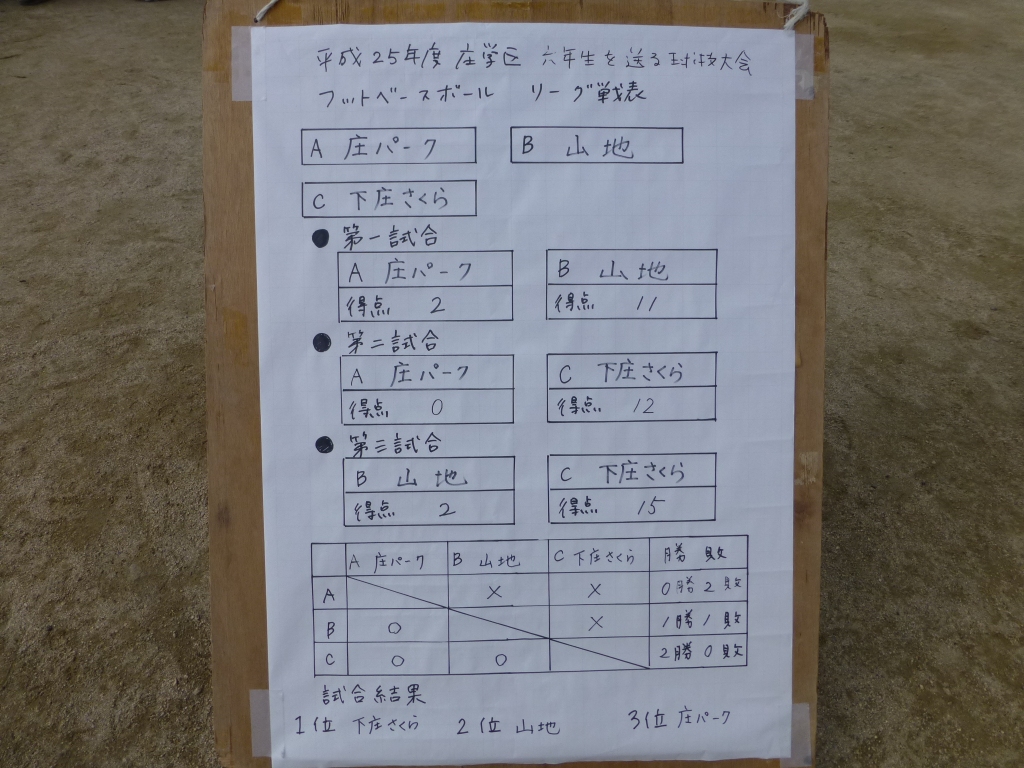 平成25年度 庄学区 六年生を送る球技大会
フットベースボール リーグ戦表
A 庄パーク B 山地
C 下庄さくら
● 第一試合
A 庄パーク B 山地
得点 2 得点 11
● 第二試合
A 庄パーク C 下庄さくら
得点 0 得点 12
● 第三試合
B 山地 C 下庄さくら
得点 2 得点 15
A 庄パーク B 山地 C 下庄さくら 勝敗
A × × 0勝2敗
B ○ × 1勝1敗
C ○ ○ 2勝0敗
試合結果
1位 下庄さくら 2位 山地 3位 庄パーク